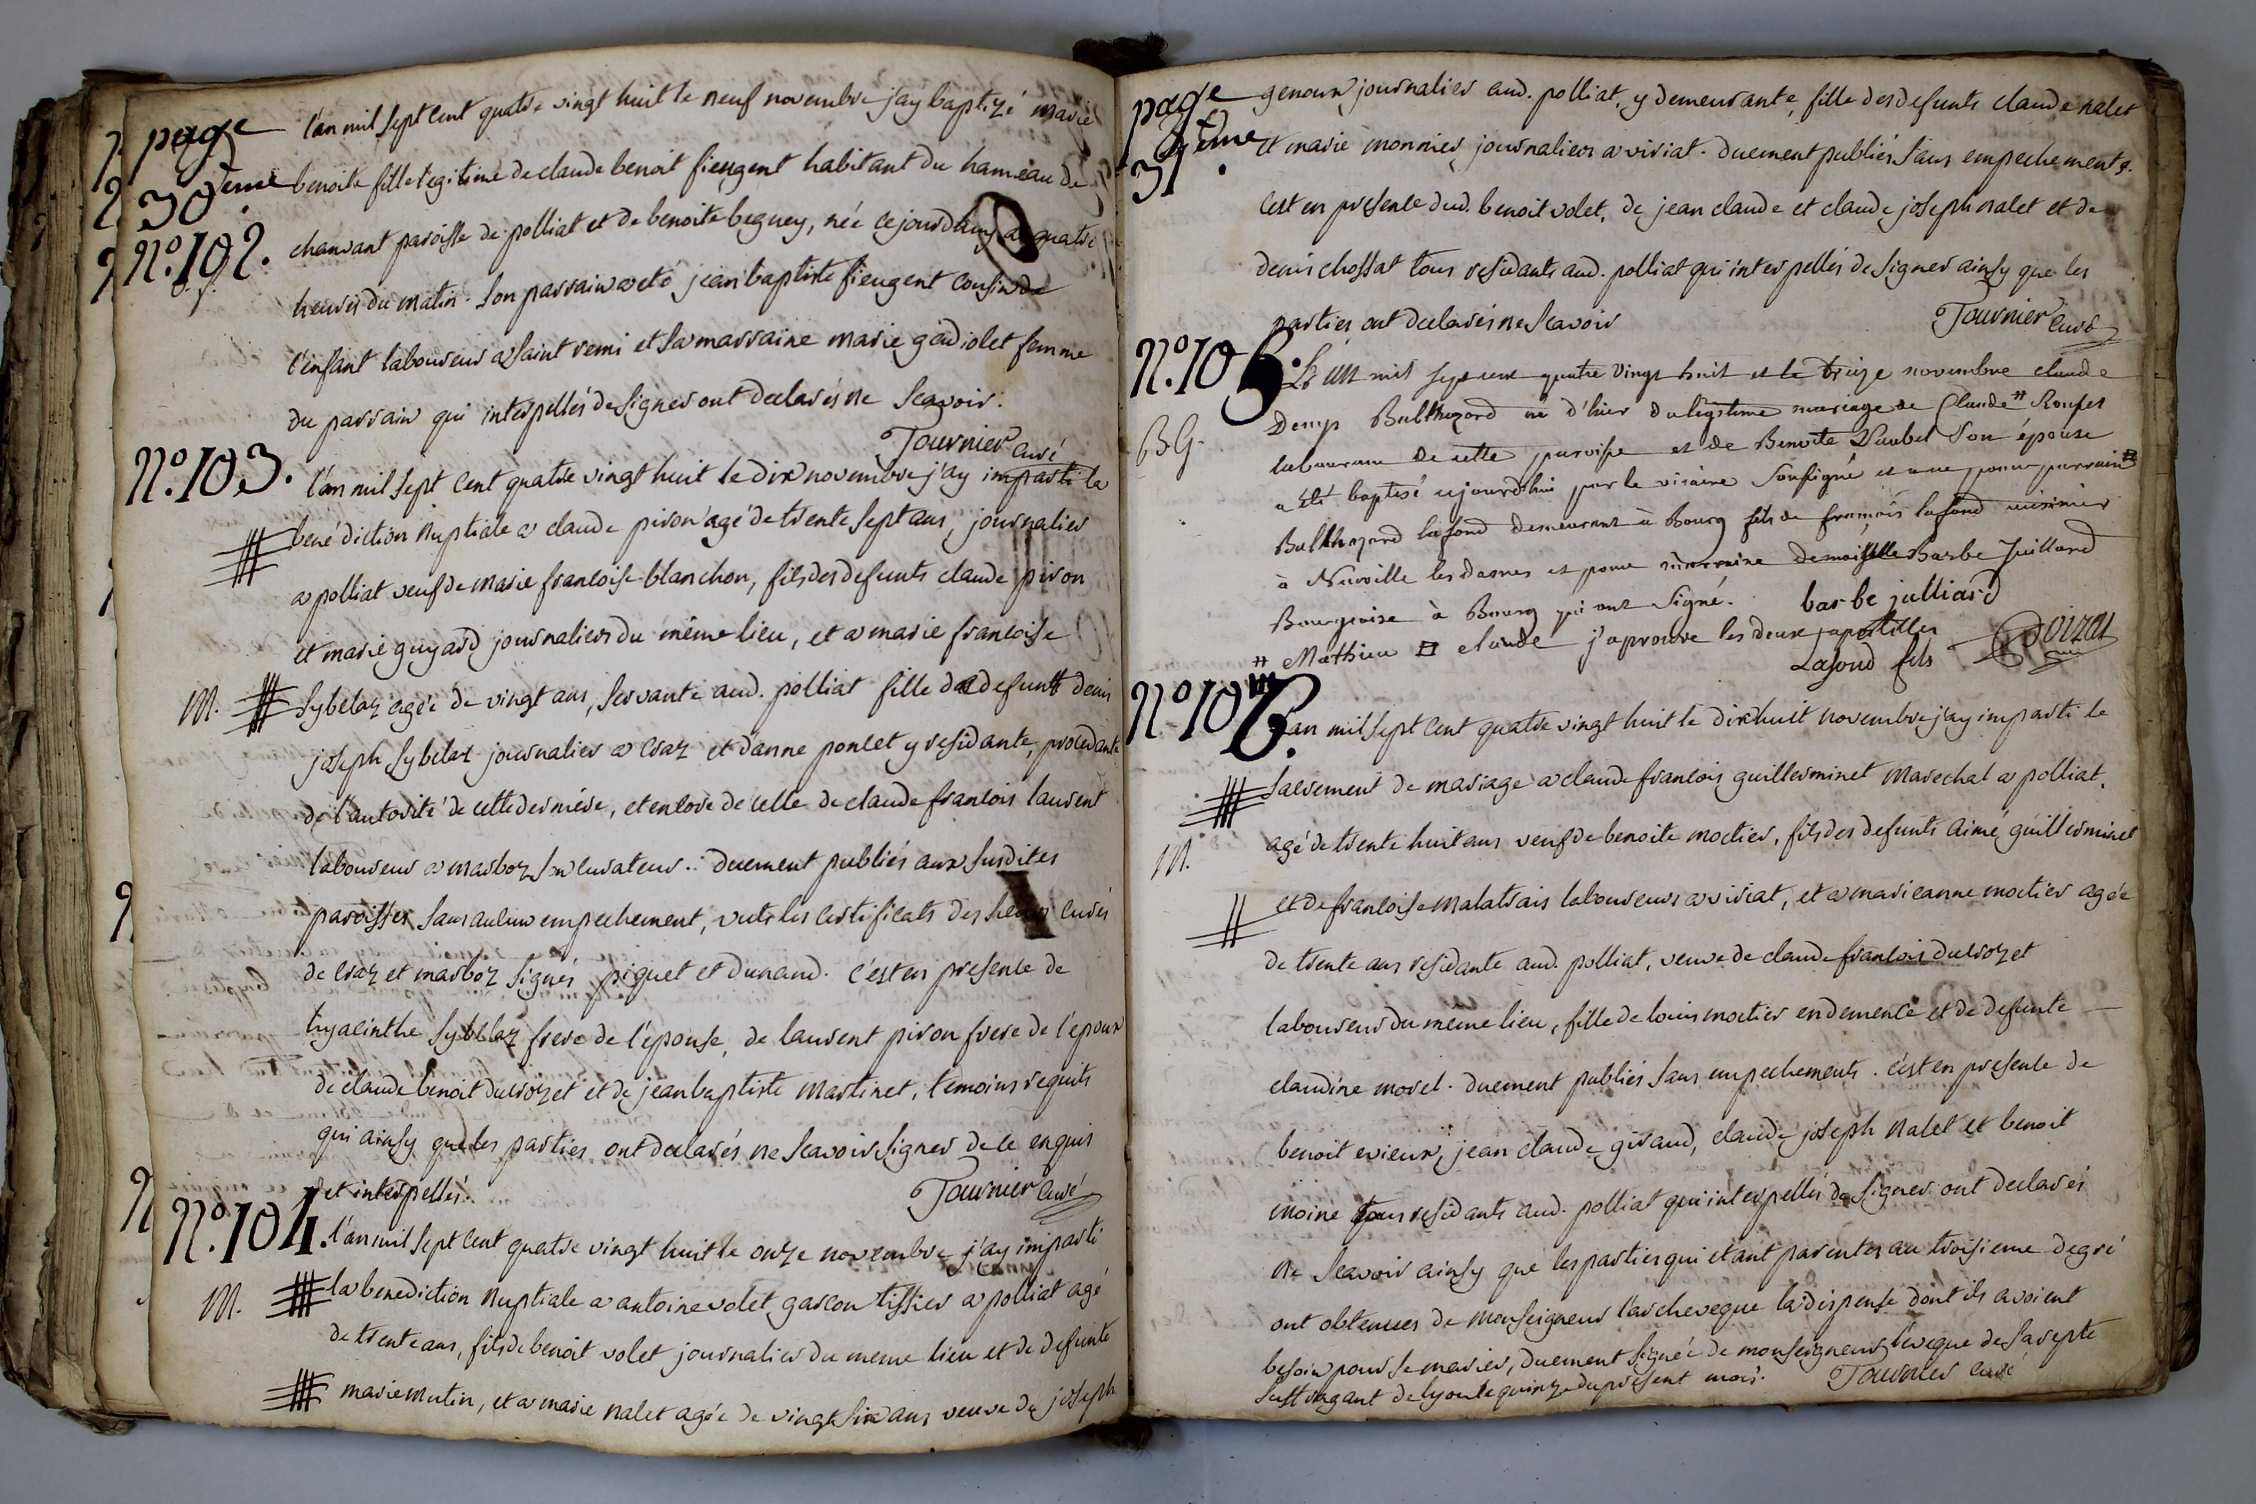 page
30eme
l'an mil sept cent quatre vingt huit le neuf novembre j'ay baptizé marie
benoite fille legitime de claude benoit fieugent habitant du hameau de
N.º 102.
chanvant paroisse de polliat et de benoite beguey, née cejourdhuy a quatre
heures du matin. Son parrain a eté jean baptiste fieugent cousin de
l'enfant laboureur a saint remi et sa marraine marie gadiolet femme
du parrain qui interpellés de signer ont declarés ne scavoir.
Tournier curé
N.º 103.
l'an mil sept cent quatre vingt huit le dix novembre j'ay imparti la
benédiction nuptiale a claude piron agé de trente sept ans, journalier
a polliat veuf de marie francoise blanchon, fils des defunts claude piron
et marie guyard journaliers du même lieu, et a marie francoise
M.
Sybelaz agée de vingt ans, servante aud. polliat fille de defunt denis
joseph Sybelaz journalier a craz et d'anne poncet y residante, procedante
de l'autorité de cette derniére, et encore de celle de claude francois laurent
laboureur a marboz son curateur. duement publiés aux susdites
paroisses sans aucun empechement, vuts les certificats des sieurs curés
de craz et marboz signés piquet et dunand. c'est en presence de
hyacinthe Sybelaz frere de l'épouse, de laurent piron frere de l'epoux
de claude benoit ducrozet et de jean baptiste martinet, temoins requits
qui ainsy que les parties ont declarés ne scavoir signer de ce enquis
et interpellés.
Tournier curé
N.º 104.
l'an mil sept cent quatre vingt huit le onze novembre j'ay imparti
M.
la benediction nuptiale a antoine volet garcon tissier a polliat agé
de trente ans, fils de benoit volet journalier du meme lieu et de defunte
marie mutin, et a marie nalet agée de vingt six ans veuve de joseph
page
31eme
genoux journalier aud. polliat, y demeurante, fille des defunts claude nalet
et marie monnier journaliers a viriat. duement publiés sans empechements.
c'est en presence dud. benoit volet, de jean claude et claude joseph nalet et de
denis chossat tous residants aud. polliat qui interpellés de signer ainsy que les
parties ont declarés ne scavoir
Tournier curé
N.º 105.
L'an mil sept cent quatre vingt huit et le treize novembre claude
B G.
Denys Balthazard né d'hier du légitime mariage de Claude # Roupet
laboureur de cette paroisse et de Benoite Vaubel son épouse
a été baptisé cejourd'hui par le vicaire soussigné et a eu pour parrain
Balthazard lafond demeurant à Bourg fils de françois lafond
à Neuville les dames et pour marraine demoiselle Barbe Juillard
Bourgeoise à Bourg qui ont signé.
barbe julliard
# Mathieu claude j'aprouve les deux apostilles
Poizat
Lafond fils
N.º 106.
l'an mil sept cent quatre vingt huit le dixhuit novembre j'ay imparti le
sacrement de mariage a claude francois guillerminet marechal a polliat,
M.
agé de trente huit ans veuf de benoite moctier, fils des defunts aimé guillerminet
et de francoise malatrais laboureurs a viriat, et a marieanne moctier agée
de trente ans residante aud. polliat, veuve de claude francois ducrozet
laboureur du meme lieu, fille de louis moctier en demence et de defunte
claudine morel. duement publiés sans empechements. c'est en presence de
benoit evieux, jean claude giraud, claude joseph nalet et benoit
moine tous residants aud. polliat qui interpellés de signer ont declarés
ne scavoir ainsy que les parties qui etant parentes au troisieme degré
ont obtenues de monseigneur l'archeveque la dispense dont ils avoient
besoin pour se marier, duement signée de monseigneur l'eveque de sarepte
suffragant de lyon le quinze du present mois.
Tournier curé